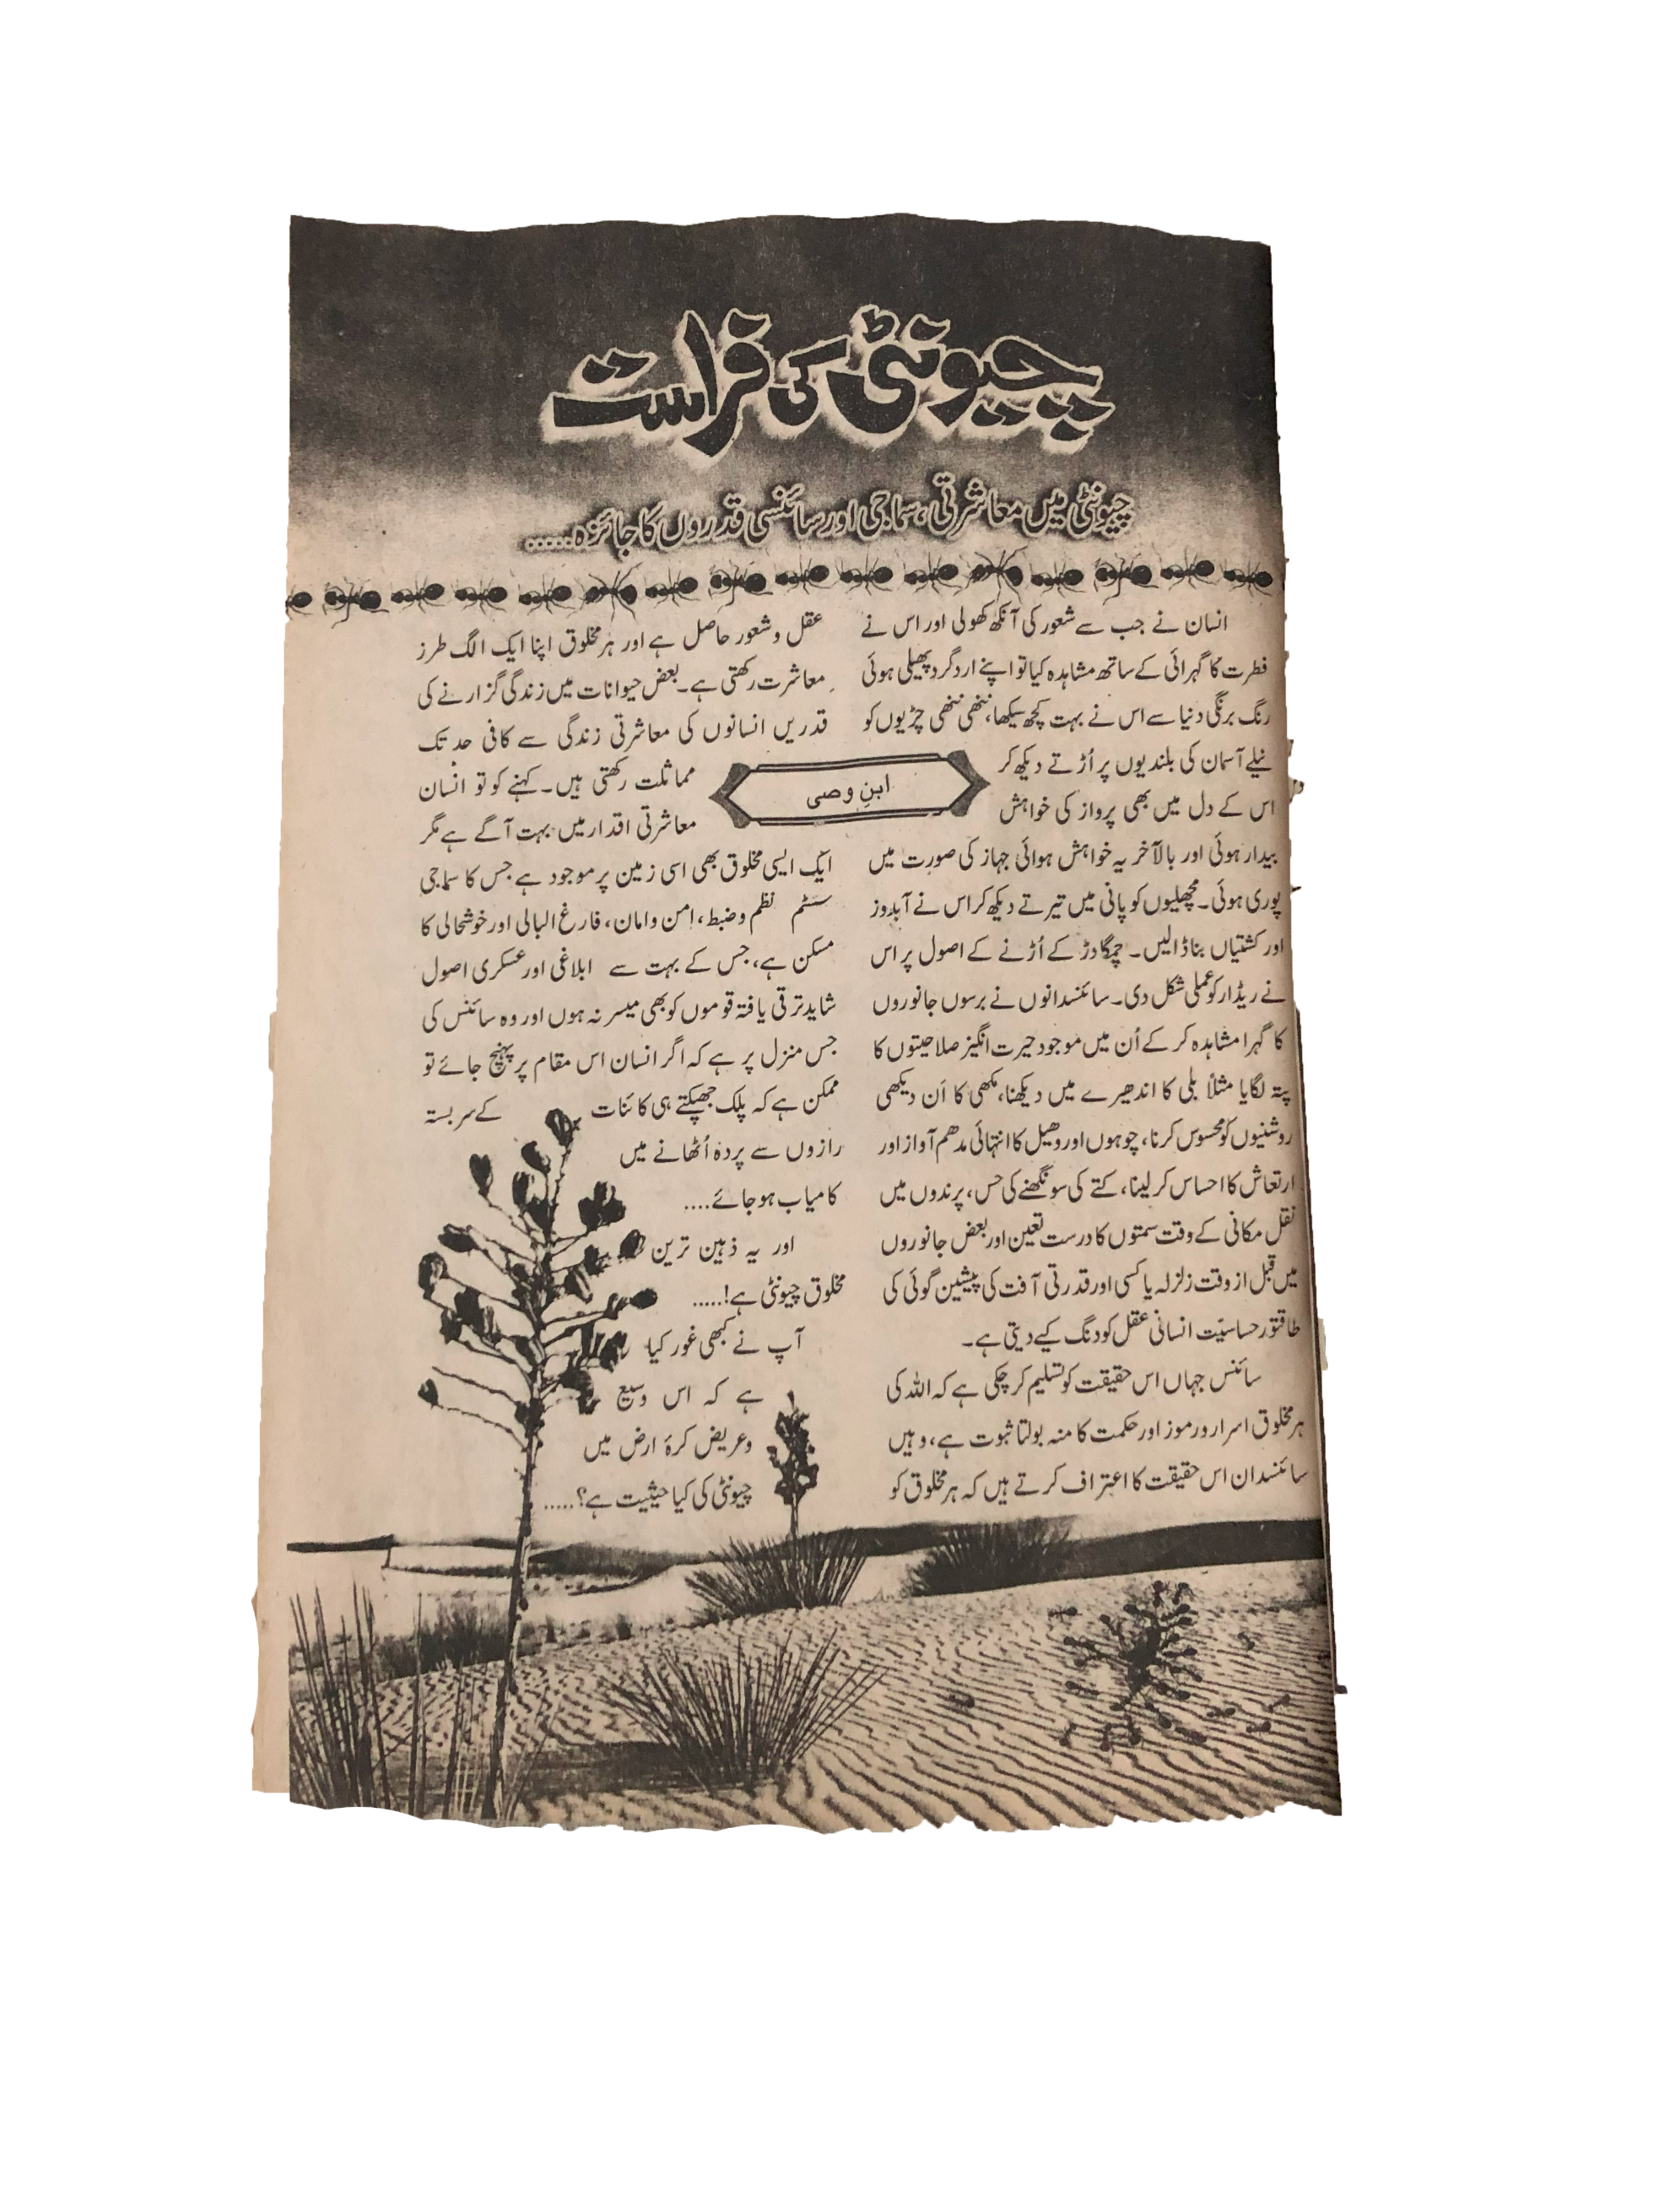 چیونٹی کی فراست
چیونٹی میں معاشرتی، سماجی اور سائنسی قدروں کا جائزہ.....
ابنِ وصی
انسان نے جب سے شعور کی آنکھ کھولی اور اس نے
فطرت کا گہرائی کے ساتھ مشاہدہ کیا تو اپنے ارد گرد پھیلی ہوئی
رنگ برنگی دنیا سے اس نے بہت کچھ سیکھا، ننھی ننھی چڑیوں کو
نیلے آسمان کی بلندیوں پر اُڑتے دیکھ کر
اس کے دل میں بھی پرواز کی خواہش
بیدار ہوئی اور بالآخر یہ خواہش ہوائی جہاز کی صورت میں
پوری ہوئی۔ مچھلیوں کو پانی میں تیرتے دیکھ کر اس نے آبدوز
اور کشتیاں بنا ڈالیں۔ چمگادڑ کے اُڑنے کے اصول پر اس
نے ریڈار کو عملی شکل دی۔ سائنسدانوں نے برسوں جانوروں
کا گہرا مشاہدہ کر کے اُن میں موجود حیرت انگیز صلاحیتوں کا
پتہ لگایا مثلاً بلی کا اندھیرے میں دیکھنا، مکھی کا اَن دیکھی
روشنیوں کو محسوس کرنا، چوہوں اور وھیل کا انتہائی مدھم آواز اور
ارتعاش کا احساس کر لینا، کتے کی سونگھنے کی حس، پرندوں میں
نقل مکانی کے وقت سمتوں کا درست تعین اور بعض جانوروں
میں قبل از وقت زلزلہ یا کسی اور قدرتی آفت کی پیشین گوئی کی
طاقتور حساسیّت انسانی عقل کو دنگ کیے دیتی ہے۔
سائنس جہاں اس حقیقت کو تسلیم کر چکی ہے کہ اللہ کی
ہر مخلوق اسرار و رموز اور حکمت کا منہ بولتا ثبوت ہے، وہیں
سائنسدان اس حقیقت کا اعتراف کرتے ہیں کہ ہر مخلوق کو
عقل و شعور حاصل ہے اور ہر مخلوق اپنا ایک الگ طرز
معاشرت رکھتی ہے۔ بعض حیوانات میں زندگی گزارنے کی
قدریں انسانوں کی معاشرتی زندگی سے کافی حد تک
مماثلت رکھتی ہیں۔ کہنے کو تو انسان
معاشرتی اقدار میں بہت آگے ہے مگر
ایک ایسی مخلوق بھی اسی زمین پر موجود ہے جس کا سماجی
سسٹم نظم و ضبط، امن و امان، فارغ البالی اور خوشحالی کا
مسکن ہے، جس کے بہت سے ابلاغی اور عسکری اصول
شاید ترقی یافتہ قوموں کو بھی میسر نہ ہوں اور وہ سائنس کی
جس منزل پر ہے کہ اگر انسان اس مقام پر پہنچ جائے تو
ممکن ہے کہ پلک جھپکتے ہی کائنات کے سربستہ
رازوں سے پردہ اُٹھانے میں
کامیاب ہو جائے....
اور یہ ذہین ترین
مخلوق چیونٹی ہے!.....
آپ نے کبھی غور کیا
ہے کہ اس وسیع
و عریض کرۂ ارض میں
چیونٹی کی کیا حیثیت ہے؟.....